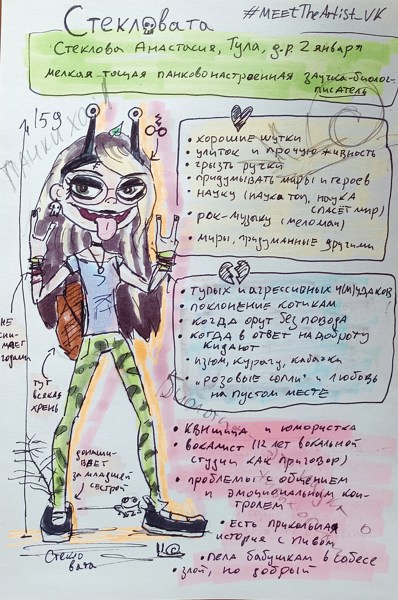 Стекловата
#MEETTHEARTIST_VK
Стеклова Анастасия, Тула, д.р. 2 января
мелкая тощая панковонастроенная заучка-биолог-
писатель
159
Панки хой
• хорошие шутки
• улиток и прочую живность
• грызть ручки
• придумывать миры и героев
• науку (наука топ, наука
спасет мир)
• рок-музыку (меломан)
• миры, придуманные другими
• тупых и агрессивных
• поклонение котикам
• когда орут без повода
• когда в ответ на доброту
кидают
• изюм, курагу, кабачки
• "розовые сопли" и любовь
на пустом месте
не
сни-
мает
годами
тут
всякая
хрень
донаши-
вает
за младшей
сестрой
• КВНщица и юмористка
• вокалист (12 лет вокальной
студии как приговор)
• проблемы с общением
и эмоциональным кон-
тролем
• есть прикольная
история с пивом
• пела бабушкам в собесе
• злой, но добрый
Стекло
вата